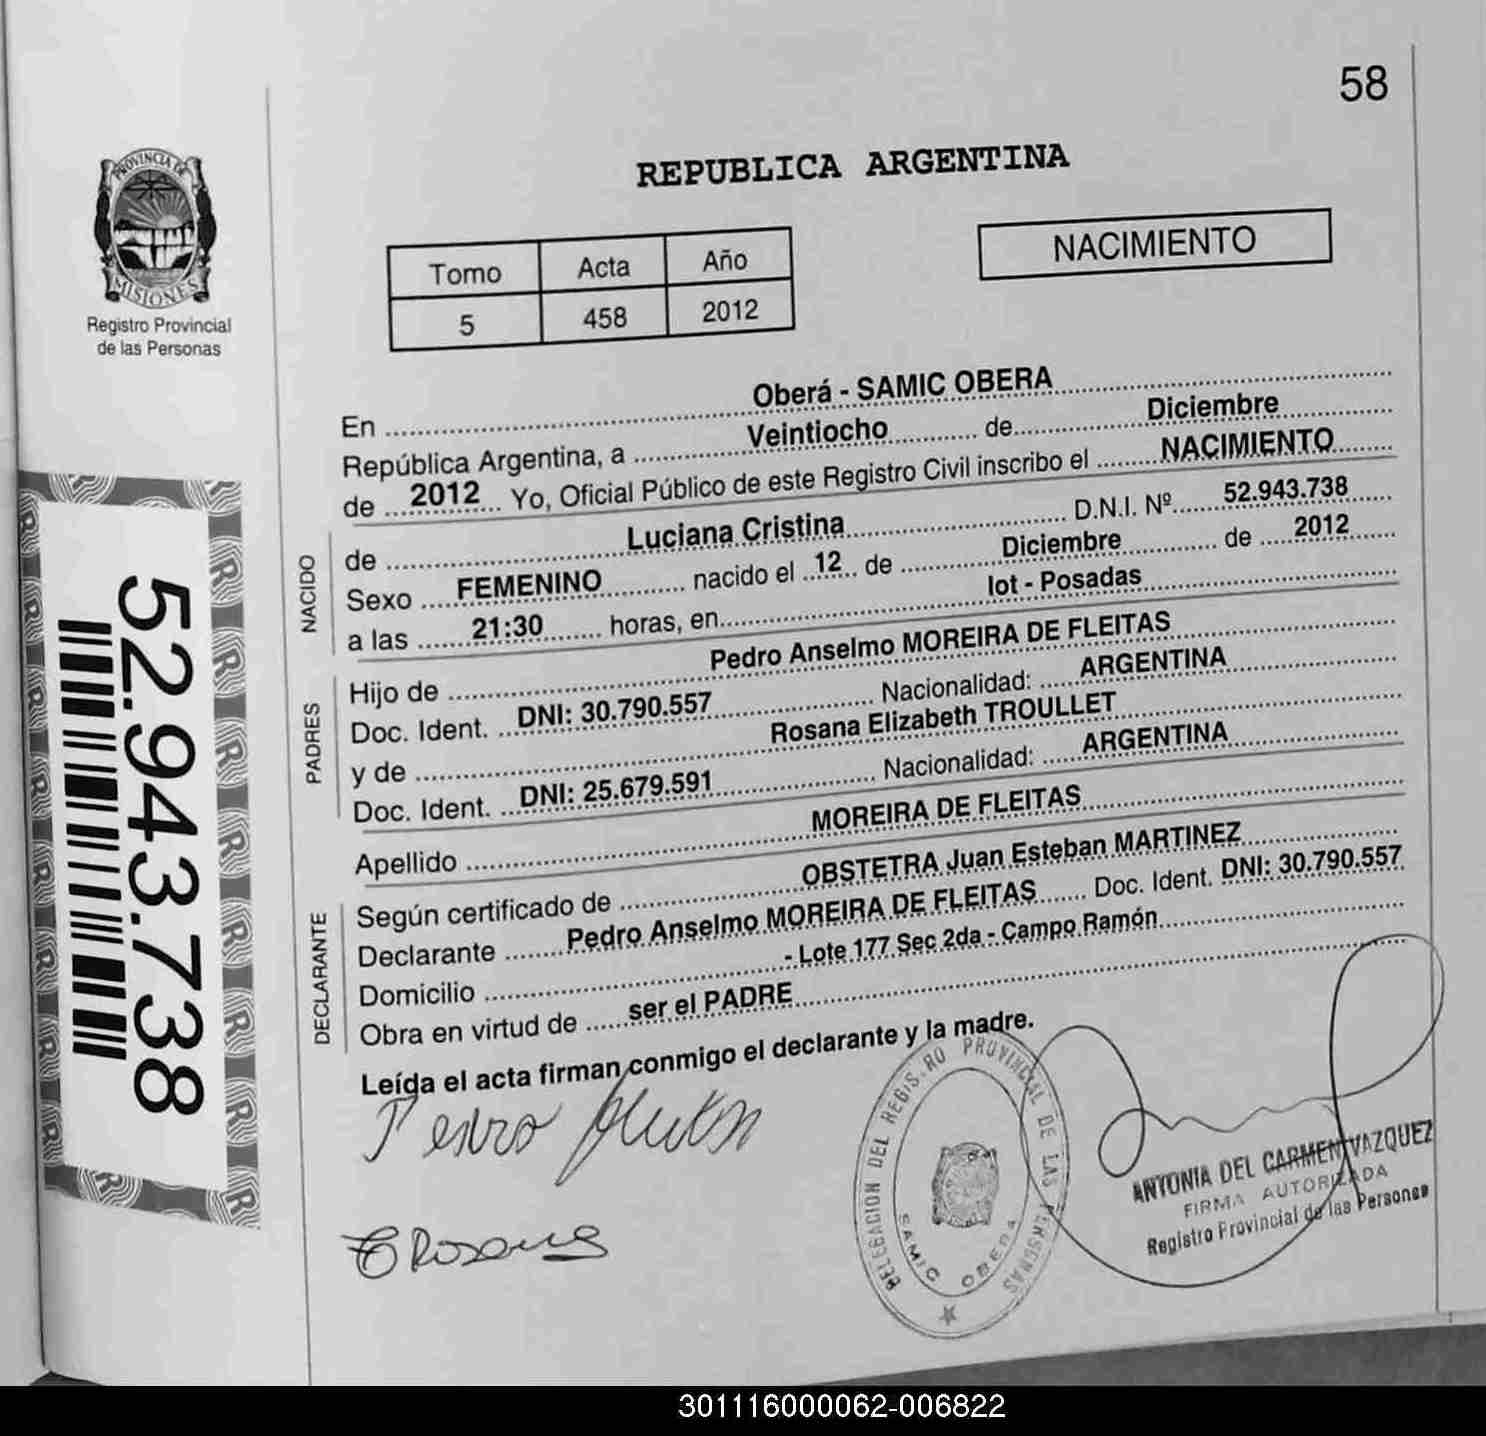 58
PROVINCIA DE
MISIONES
Registro Provincial
de las Personas
REPUBLICA ARGENTINA
NACIMIENTO
Tomo Acta Año
5 458 2012
En Oberá - SAMIC OBERA
República Argentina, a Veintiocho de Diciembre
de 2012 Yo, Oficial Público de este Registro Civil inscribo el NACIMIENTO
NACIDO
de Luciana Cristina D.N.I. Nº 52.943.738
Sexo FEMENINO nacido el 12 de Diciembre de 2012
a las 21:30 horas, en lot - Posadas
PADRES
Hijo de Pedro Anselmo MOREIRA DE FLEITAS
Doc. Ident. DNI: 30.790.557 Nacionalidad: ARGENTINA
y de Rosana Elizabeth TROULLET
Doc. Ident. DNI: 25.679.591 Nacionalidad: ARGENTINA
Apellido MOREIRA DE FLEITAS
DECLARANTE
Según certificado de OBSTETRA Juan Esteban MARTINEZ
Declarante Pedro Anselmo MOREIRA DE FLEITAS Doc. Ident. DNI: 30.790.557
Domicilio - Lote 177 Sec 2da - Campo Ramón
Obra en virtud de ser el PADRE
Leída el acta firman conmigo el declarante y la madre.
Pedro
Rosana
DELEGACION DEL REGISTRO PROVINCIAL DE LAS PERSONAS
SAMIC OBERA
ANTONIA DEL CARMEN VAZQUEZ
FIRMA AUTORIZADA
Registro Provincial de las Personas
52.943.738
301116000062-006822